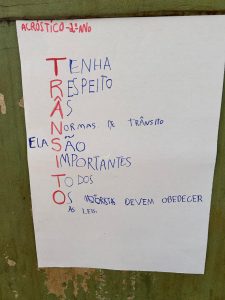 ACRÓSTICO-2ºANO
TENHA
RESPEITO
ÀS
NORMAS DE TRÂNSITO
ELA SÃO
IMPORTANTES
TODOS
OS DEVEM OBEDECER
AS LEIS